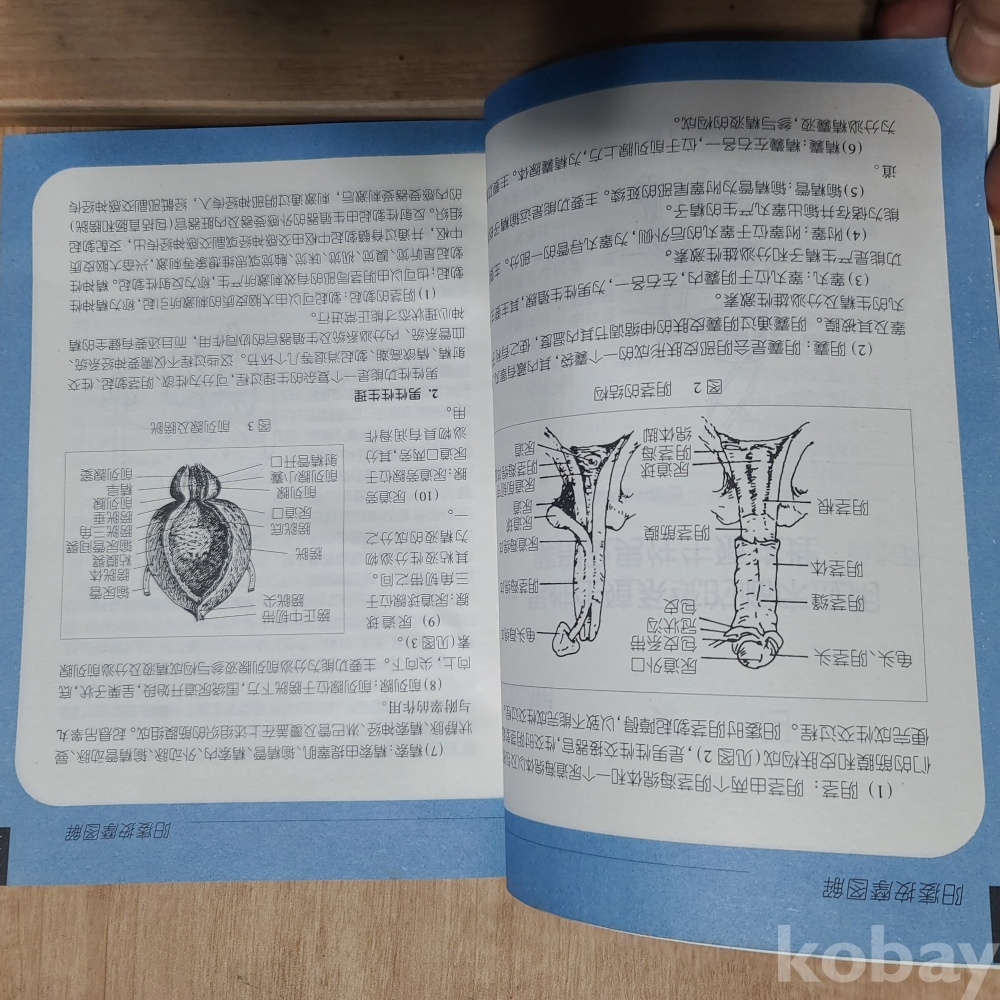 阳痿按摩图解
(1) 阴茎：阴茎由两个阴茎海绵体和一个尿道海绵体以及
们的筋膜和皮肤构成(见图 2)，是男性性交接器官，性交时阴茎
便完成性交过程。阳痿时阴茎勃起障碍，以致不能完成性交过程
龟头、阴茎头
阴茎缝
阴茎体
阴茎根
尿道外口
包皮系带
冠状沟
包皮
阴茎筋膜
尿道球
阴茎海
绵体脚
龟头
阴茎海绵
尿道海绵
尿道球
尿道
尿道
图 2　阴茎的结构
(2) 阴囊：阴囊是会阴部皮肤形成的一个囊袋，其内藏有睾
睾及其被膜。阴囊通过阴囊皮肤的伸缩调节其内温度，使之
丸的生精及分泌雄性激素。
(3) 睾丸：睾丸位于阴囊内，左右各一，为男性生殖腺，其主要
功能是产生精子和分泌雄性激素。
(4) 附睾：附睾位于睾丸的后外侧，为睾丸导管的一部分。主要
能为储存并输出睾丸产生的精子。
(5) 输精管：输精管为附睾尾部的延续。主要功能是运输精子的
道。
(6) 精囊：精囊左右各一，位于前列腺上方，为精囊腺体。主要
为分泌精囊液，参与精液的构成。
阳痿按摩图解
(7) 精索：精索由提睾肌、输精管、精索内、外动脉、输精管动脉、蔓
状静脉、精索神经、淋巴管及覆盖在上述组织的筋膜组成。起悬吊睾丸
与附睾的作用。
(8) 前列腺：前列腺位于膀胱下方，围绕尿道开始段，呈栗子状，底
向上，尖向下。主要功能为分泌前列腺液参与构成精液及分泌前列腺
素(见图 3)。
(9) 尿道球
腺：尿道球腺位于
三角韧带之间。
其精液性分泌物
为精液的成分之
一。
(10) 尿道旁
腺：尿道旁腺位于
尿道口两旁，其分
泌物具有润滑作
用。
脐正中韧带
膀胱尖
膀胱
膀胱底
尿道口
前列腺
前列腺小囊
射精管开口
输尿管
膀胱体
粘膜襞
输尿管间襞
膀胱三角
膀胱垂
前列腺
精阜
前列腺窦
图 3　前列腺及膀胱
2. 男性性生理
男性性功能是一个复杂的生理过程，可分为性欲、阴茎勃起、性交
射、精欲高潮、勃起消退等几个环节。这些过程不仅需要神经系统、
血管系统、内分泌系统及生殖器官的协同作用，而且还要有健全的精
神心理状态才能正常进行。
(1) 阴茎的勃起：勃起可以由大脑皮质的刺激所引起，称为精神性
勃起；也可以由阴茎局部的有效刺激所产生，称为反射性勃起。精神性
勃起是听觉、嗅觉、视觉、味觉、触觉或思维想象等刺激，兴奋大脑皮质
中枢，并通过脊髓勃起中枢由交感神经或副交感神经传出，支配勃起
组织。反射性勃起由生殖器的外感受器及内脏器官(包括直肠和膀胱)
的内感受器受刺激后，刺激通过阴部神经传入，经骶部副交感神经传
kobay